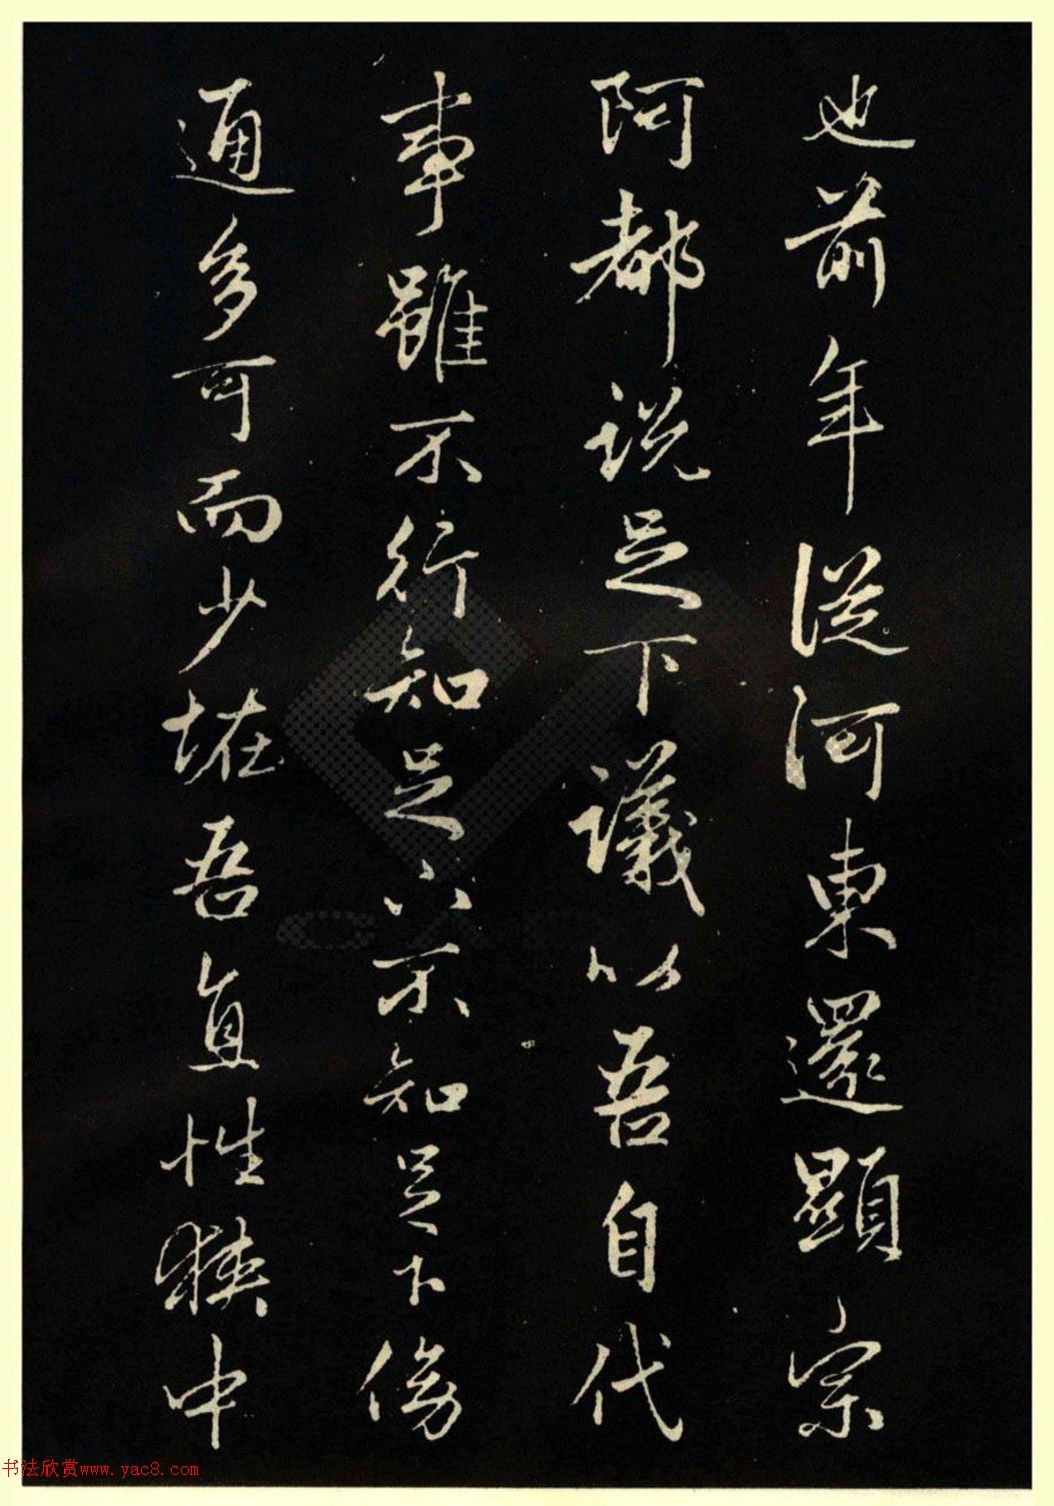 也前年從河東還顯宗
阿都說足下議以吾自代
事雖不行知足下不知足下傍
通多可而少恠吾直性狹中
书法欣赏www.yac8.com